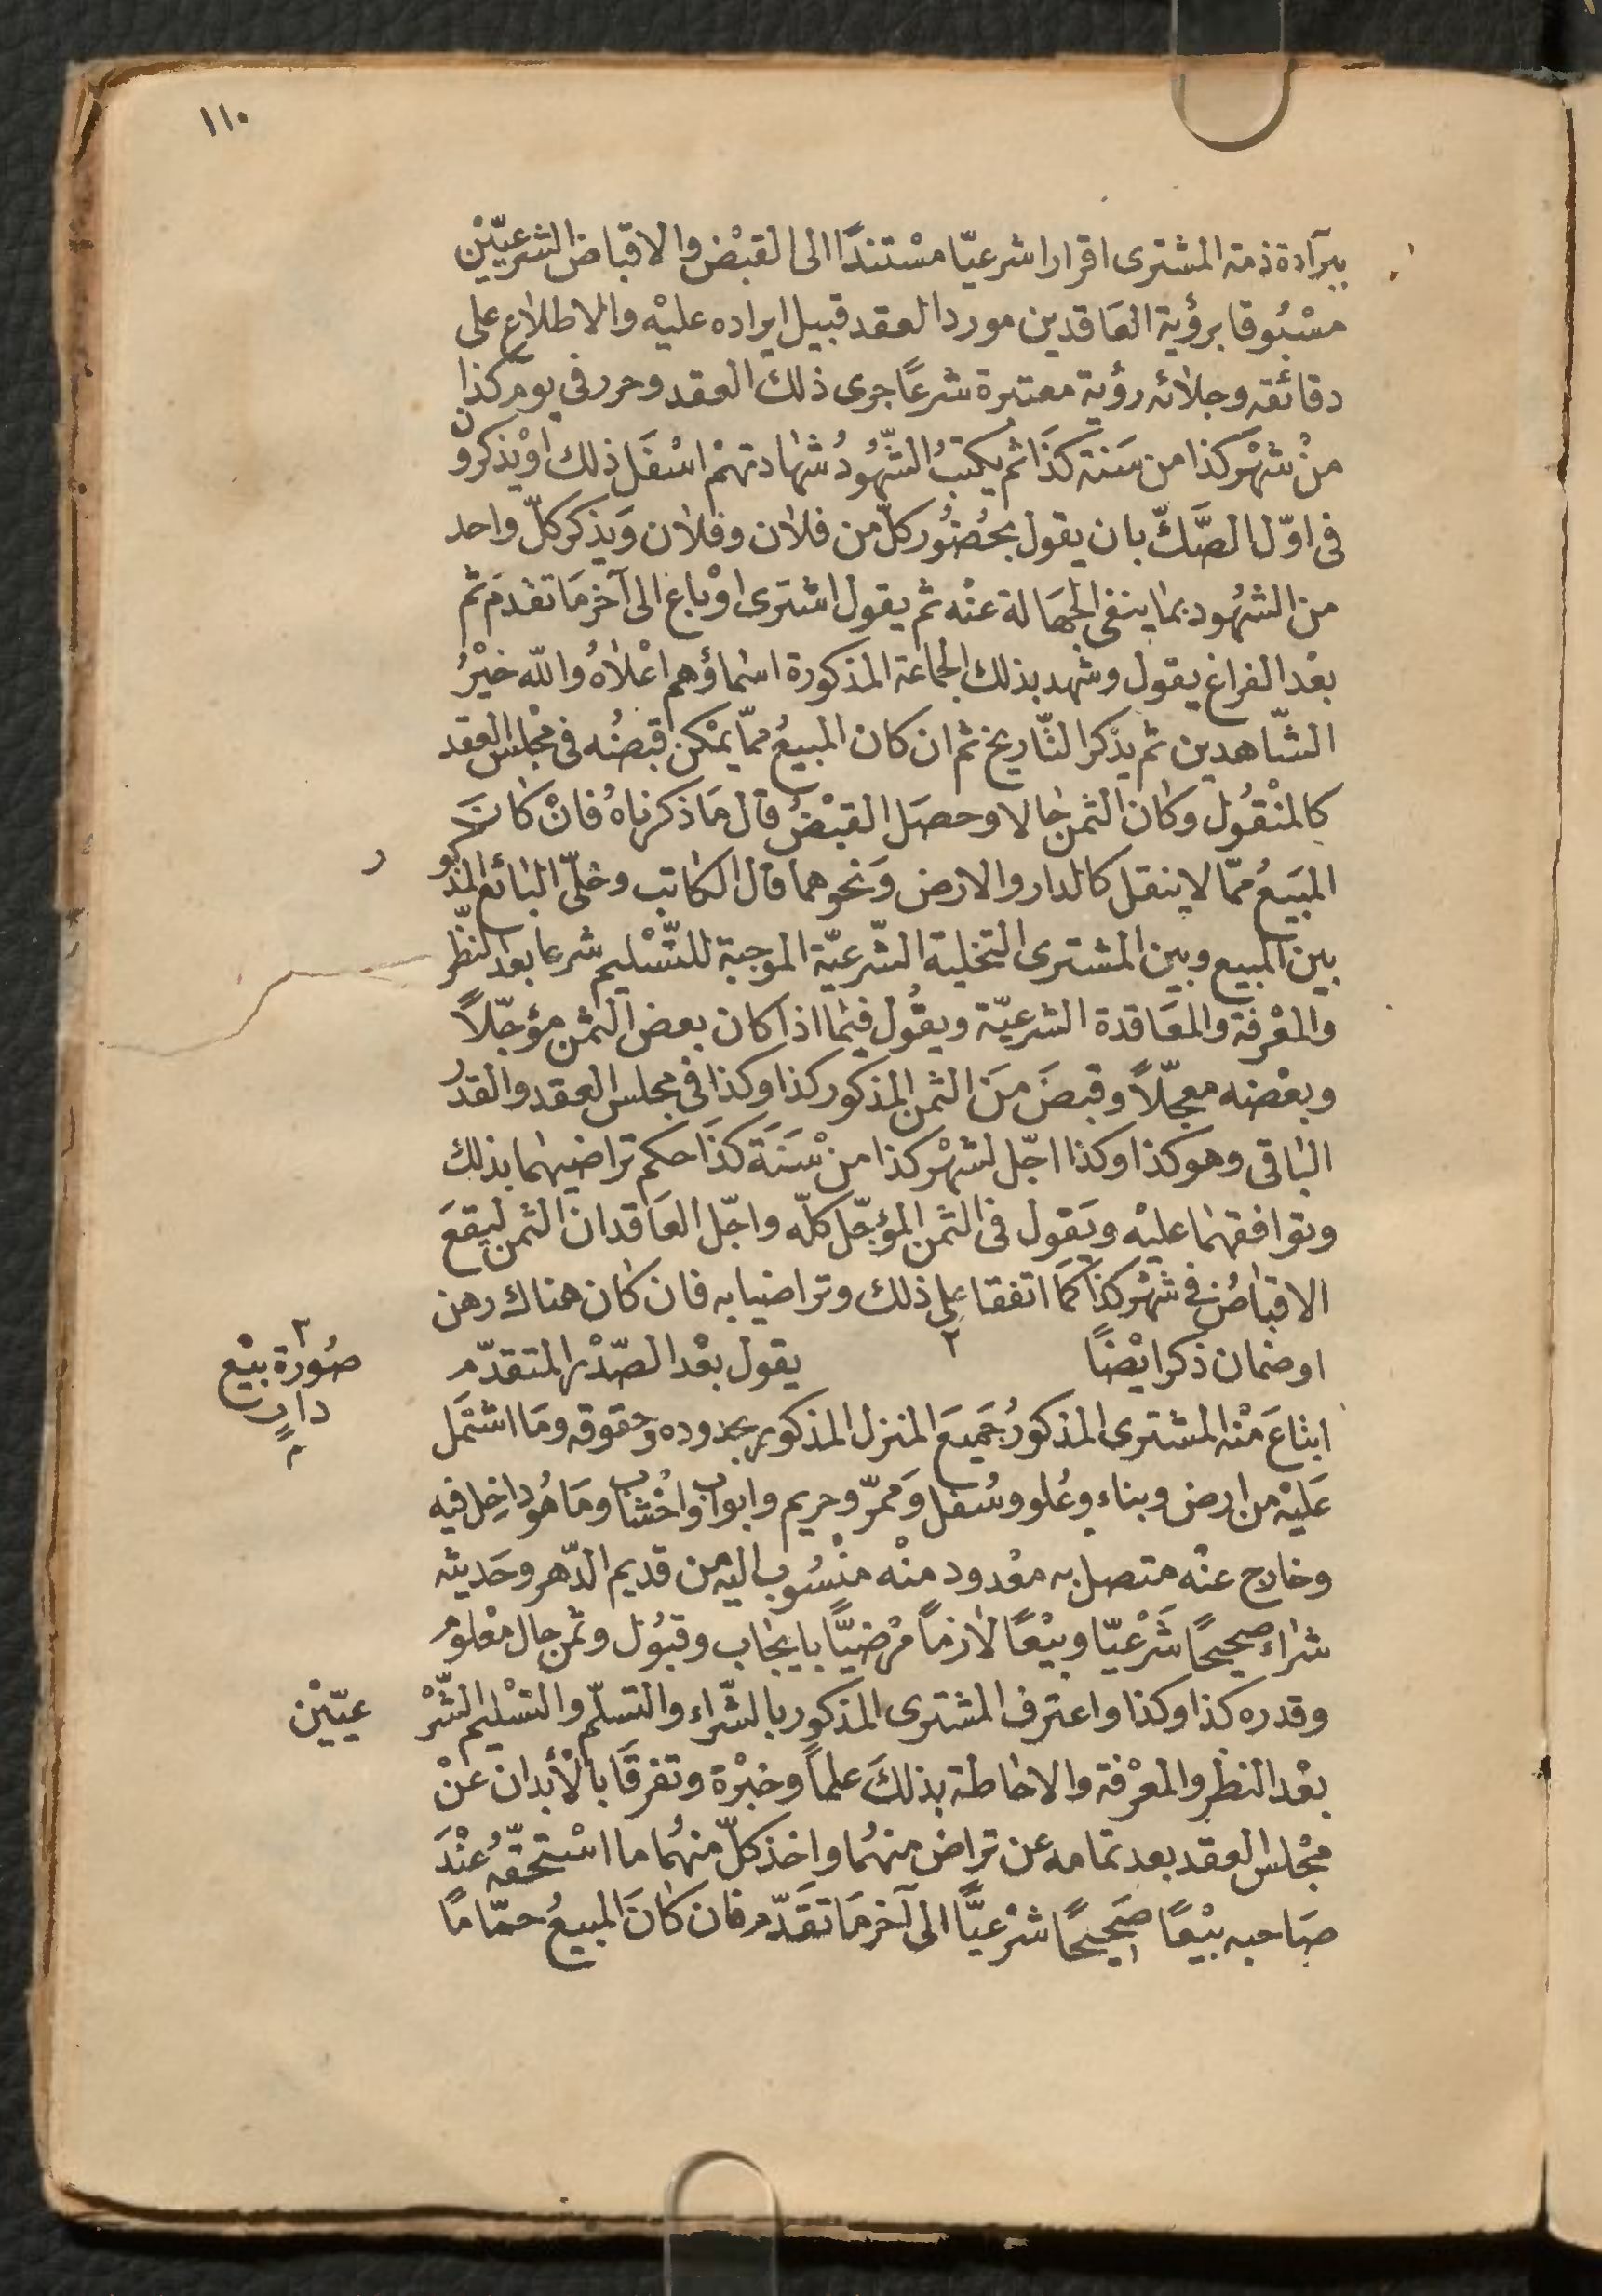 ١١٠
ببرآءة ذمة المشترى اقرارا شرعيّا مسْتندًا الى القبْض والاقباض الشرعيّيْن
مسْبُوقا برؤية العَاقدين مورد العقد قبيل ايراده عليْه والاطلاع على
دقائقه وجلائه رؤية معتبرة شرعًا جرى ذلك العقد وحرر فى يوم كذا
منْ شهْر كذا من سَنة كذَا ثم يكتبُ الشّهُودُ شهادتهمْ اسْفَل ذلك اوْ يذكرون
فى اوّل الصَّكّ بان يقول بحُضُور كلّ من فلان وفلان وَيذكر كلّ واحد
من الشهُود بما ينفى الجهَالة عنْه ثم يقول اشترى اوْ باع الى آخر مَا تقدمَ ثم
بعْد الفراغ يقول وشهد بذلك الجماعة المذكورة اسْماؤهم اعْلاهُ والله خيْرُ
الشّاهدين ثم يذكر التّاريخ ثم ان كان المبيعُ ممّا يمْكن قبضُه فى مجْلس العقد
كالمنْقُول وكان الثمن حالا وحصَل القبْضُ قال مَا ذكرناهُ فانْ كانَ
المبَيعُ ممّا لا ينقل كالدار والارض وَنحوهما قال الكاتب وخلّى البائع المذكور
بين المبيع وبين المشترى التخلية الشّرعيّة الموجبة للتّسْليم شرعا بعد النظّر
والمعْرفة والمعَاقدة الشرعيّة ويقُول فيما اذا كان بعض الثمن مؤجّلاً
وبعْضه معجّلاً وقبضَ مِنَ الثمن المذكور كذا وكذا فى مجلس العقد والقدْر
الباقى وهو كذا وكذا اجّل لشهْر كذا منْ سَنَة كذَا حكم تراضيهما بذلك
وتوافقهما عليْه ويَقول فى الثمن المؤجّل كلّه واجّل العَاقدان الثمن ليقعَ
الاقباضُ فى شهْر كذا كمَا اتفقا على ذلك وتراضيا به فان كان هناك رهن
اوضمان ذكر ايْضًا ٢ يقول بعْد الصّدْر المتقدّم
٢ صُورة بيْع
دار
ابتَاعَ مْنْه المشترى المذكورُ جَميعَ المنزل المذكور بحدوده وحقوقه ومَا اشتَمل
عَليْه من ارض وبناء وعُلو وسُفل وَممرّ وحريم وابواب واخْشاب ومَا هُو داخِل فيه
وخارج عنْه متصل به معْدود منْه منْسُوب اليْه من قديم الدّهر وحَديثه
شراءً صحيحًا شَرْعيّا وبيْعًا لازماً مرْضيًّا بايجاب وقبُول وثمن حال معْلوم
وقدره كذا وكذا واعترف المشترى المذكور بالشّراء والتسلّم والتسْليم الشّرْعيّيْن
بعْد النظر والمعْرفة والاحاطة بذلكَ علماً وخبْرة وتفرقَا بالأبدان عنْ
مجْلس العقد بعد تمامه عن تراض منهُما واخذ كلّ منهُما ما اسْتحقّهُ عنْدَ
صَاحبه بيْعًا صَحيحًا شرْعيًّا الى آخر مَا تقَدّم فان كانَ المبيعُ حمّامًا